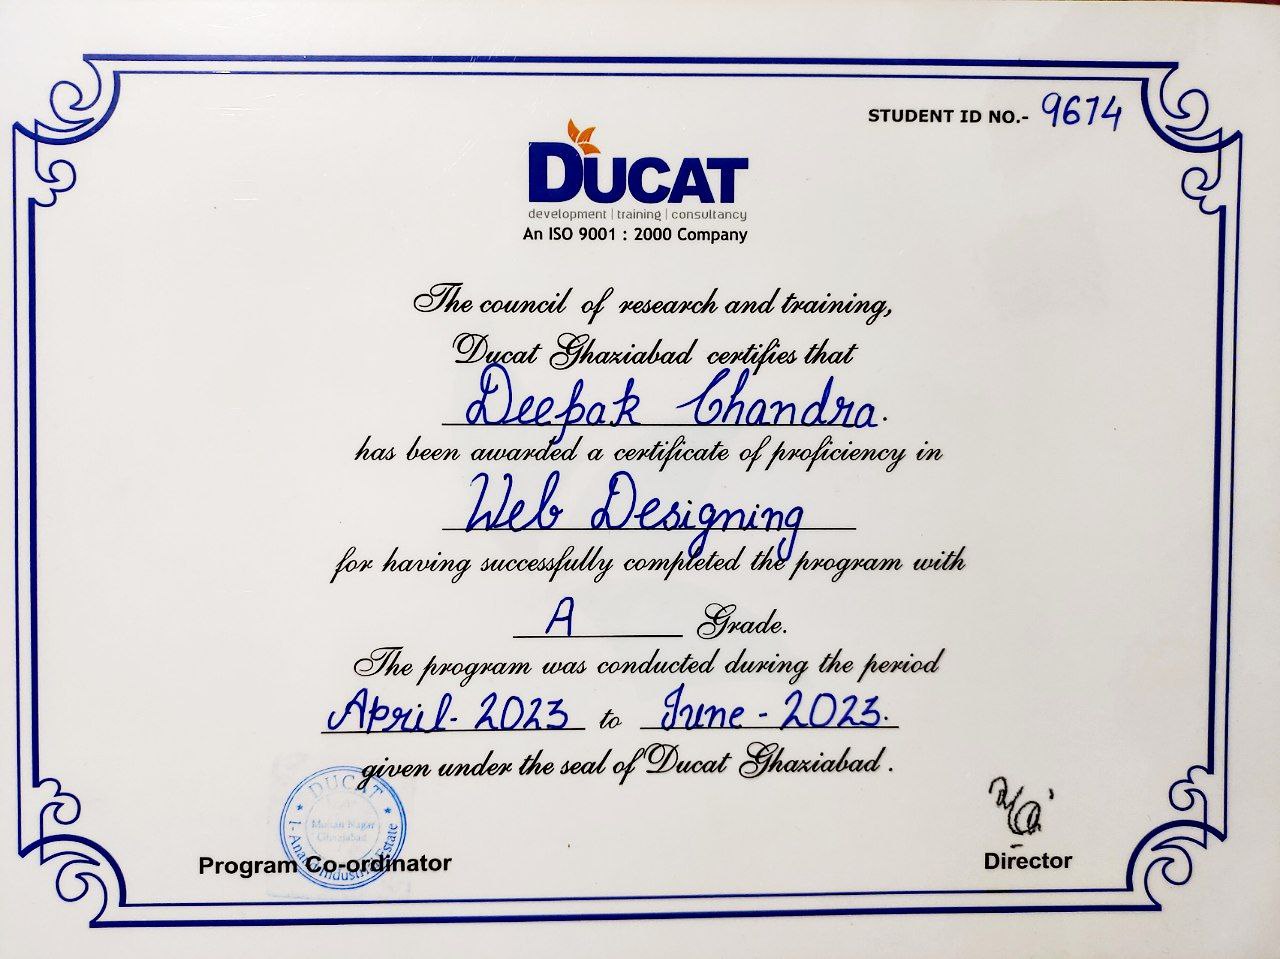 STUDENT ID NO.- 9674
DUCAT
development | training | consultancy
An ISO 9001 : 2000 Company
The council of research and training,
Ducat Ghaziabad certifies that
Deepak Chandra.
has been awarded a certificate of proficiency in
Web Designing
for having successfully completed the program with
A Grade.
The program was conducted during the period
April- 2023 to June - 2023.
given under the seal of Ducat Ghaziabad .
DUCAT
Mohan Nagar
Ghaziabad
1- Anand Industrial Estate
Program Co-ordinator
Director